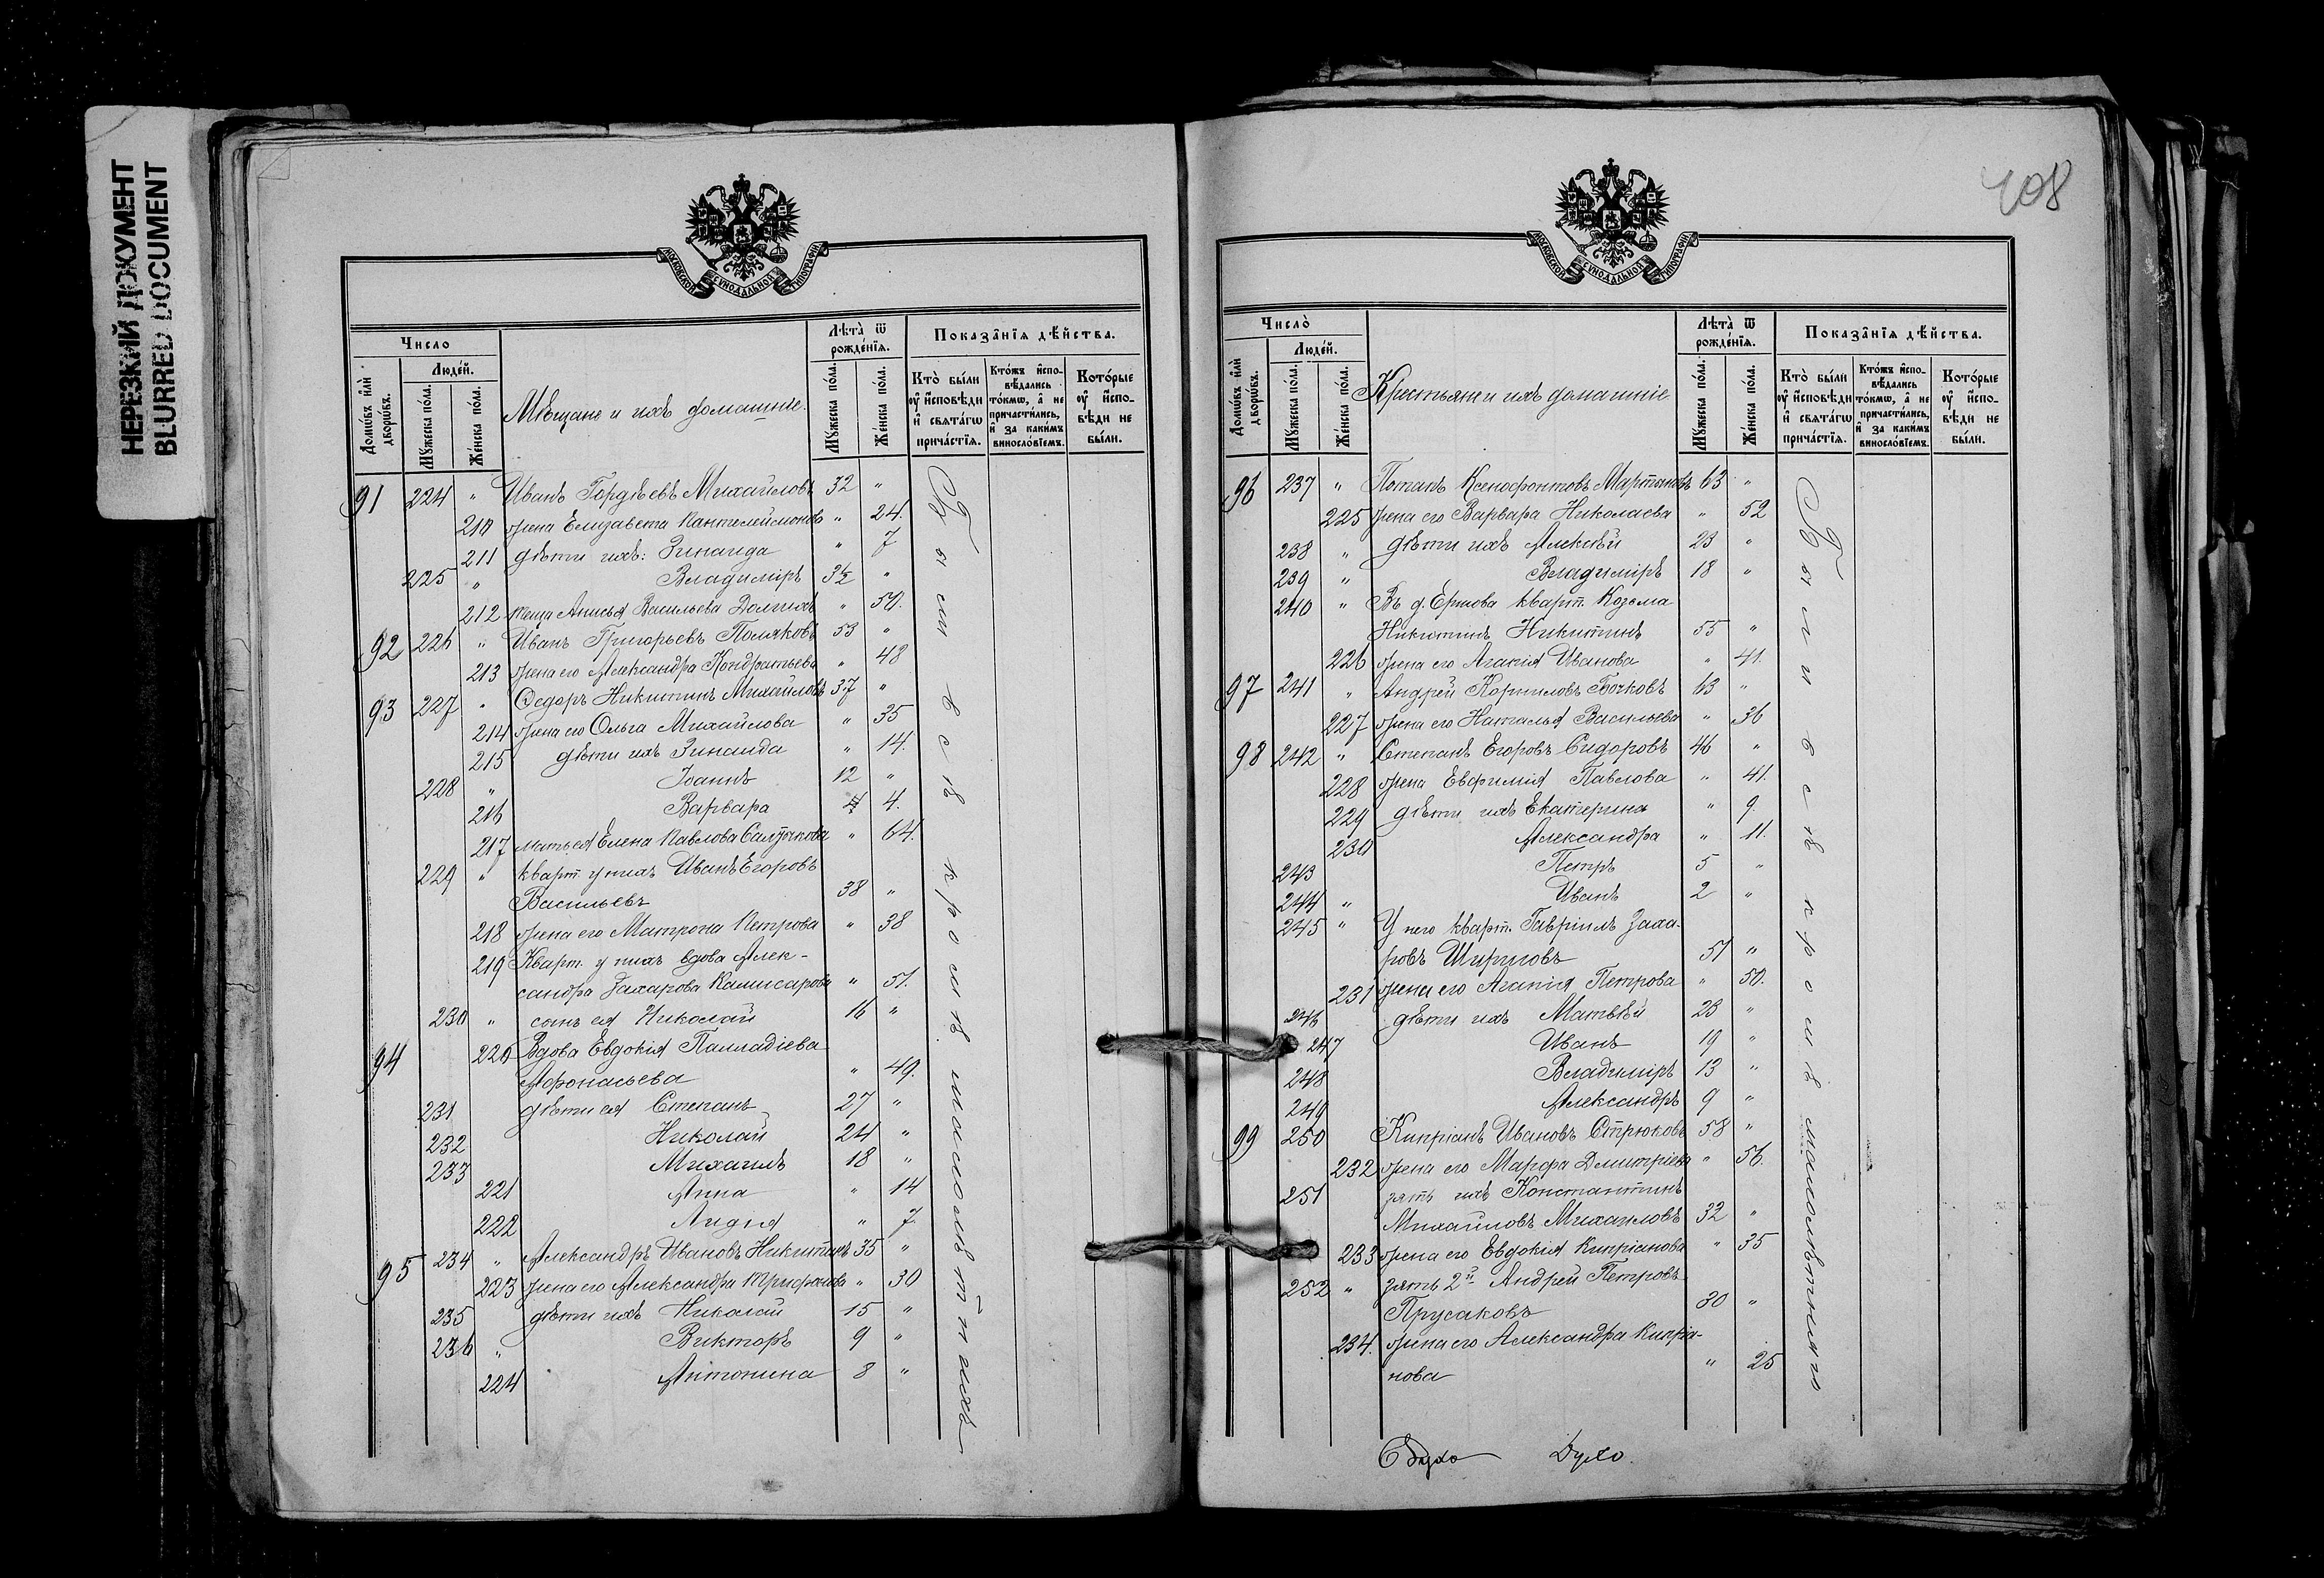 НЕРЕЗКИЙ ДОКУМЕНТ
BLURRED DOCUMENT
МОСКОВСКОЙ СѴНОДАЛЬНОЙ ТИПОГРАФІИ
Число
Людей.
Домѡвъ или дворѡвъ.
Мужеска пола.
Женска пола.
Мѣщане и ихъ домашніе.
Лѣта ѿ рожденія.
Мужеска пола.
Женска пола.
Показанія дѣйства.
Кто были оу исповѣди и свѧтагѡ причастія.
Ктожъ исповѣдались токмѡ, а не причастились, и за какимъ винословіемъ.
Которые оу исповѣди не были.
91 224 " Иванъ Гордѣевъ Михайловъ 32 "
210 жена Елизавета Пантелеймонова " 24.
211 дѣти ихъ: Зинаида " 7
225 " Владиміръ 3½ "
212 теща Анисья Васильева Долгихъ " 50.
92 226 " Иванъ Григорьевъ Поляковъ 53 "
213 жена его Александра Кондратьева " 48
93 227 " Ѳедоръ Никитинъ Михайловъ 37 "
214 жена его Ольга Михайлова " 35
215 дѣти ихъ Зинаида " 14.
228 " Іоаннъ 12 "
216 Варвара 4.
217 мать ея Елена Павлова " 64.
229 " кварт. у нихъ Иванъ Егоровъ
Васильевъ 38 "
218 жена его Матрона Петрова " 38
219 Кварт. у нихъ вдова Алек-
сандра Захарова Камисарова " 51.
230 " сынъ ея Николай 16 "
94 220 Вдова Евдокія Палладіева
Афонасьева " 49.
231 дѣти ея Степанъ 27 "
232 Николай 24 "
233 Михаилъ 18 "
221 Анна " 14
222 Лидія " 7.
95 234 " Александръ Ивановъ Никитинъ 35 "
223 жена его Александра Трифонова " 30
235 дѣти ихъ Николай 15 "
236 " Викторъ 9 "
224 Антонина 8 "
Были всѣ кромѣ малолѣтнихъ
408
МОСКОВСКОЙ СѴНОДАЛЬНОЙ ТИПОГРАФІИ
Число
Людей.
Домѡвъ или дворѡвъ.
Мужеска пола.
Женска пола.
Крестьяне и ихъ домашніе
Лѣта ѿ рожденія.
Мужеска пола.
Женска пола.
Показанія дѣйства.
Кто были оу исповѣди и свѧтагѡ причастія.
Ктожъ исповѣдались токмѡ, а не причастились, и за какимъ винословіемъ.
Которые оу исповѣди не были.
96 237 " Потапъ Ксенофонтовъ Мартыновъ 63 "
225 жена его Варвара Николаева " 52
238 " дѣти ихъ Алексѣй 23 "
239 " Владиміръ 18 "
240 " Въ д. Ершова кварт. Козьма
Никитинъ Никитинъ 55 "
226 жена его Агапія Иванова " 41.
97 241 " Андрей Корниловъ Бочковъ 63 "
227 жена его Наталья Васильева " 36
98 242 " Степанъ Егоровъ Сидоровъ 46 "
228 жена Евфимія Павлова " 41.
229 дѣти ихъ Екатерина " 9
230 Александра " 11.
243 Петръ 5 "
244 " Иванъ 2 "
245 " У него кварт. Гавріилъ Заха-
ровъ Шируновъ 51 "
231 жена его Агапія Петрова " 50.
246 дѣти ихъ Матвѣй 23 "
247 Иванъ 19 "
248 Владиміръ 13 "
249 Александръ 9 "
99 250 Кипріанъ Ивановъ Стрюковъ 58 "
232 жена его Марфа Дмитріева " 56.
251 зять ихъ Константинъ
Михайловъ Михайловъ 32 "
233 жена его Евдокія Кипріанова " 35
252 " зять 2й Андрей Петровъ
Прусаковъ 30 "
234. жена его Александра Кипріа-
нова " 25
Были всѣ кромѣ малолѣтнихъ
Духо